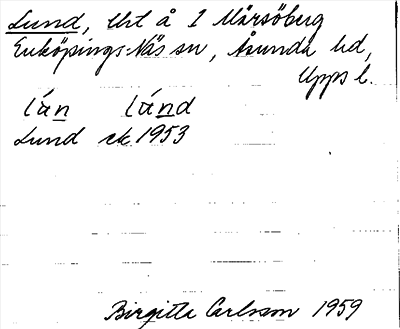 Lund, lht å 1 Mårsöberg
Enköpings-Näs sn, Åsunda hd,
Upps l.
lán lánd
Lund ek 1953
Birgitta Carlsson 1959